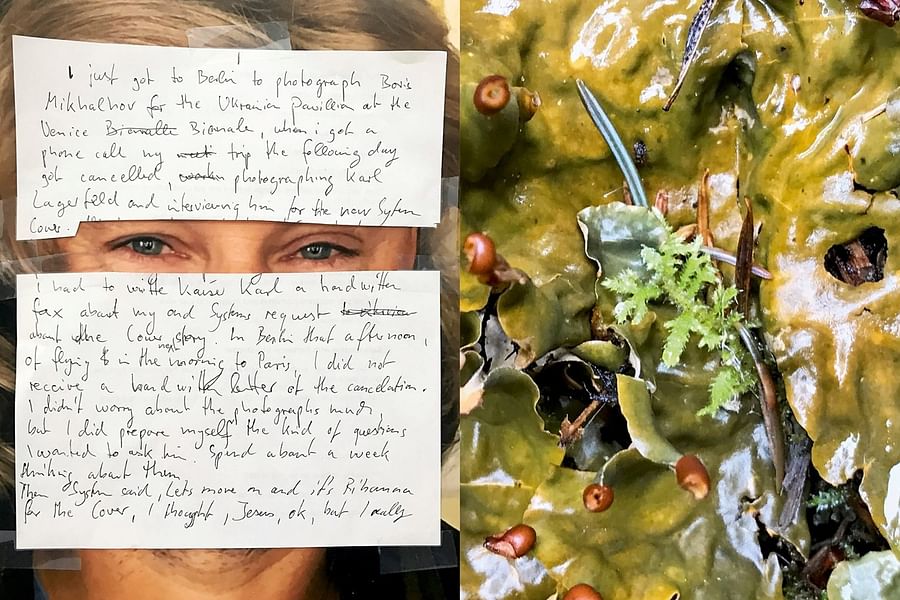 I just got to Berlin to photograph Boris
Mikhailov for the Ukrainian pavillion at the
Venice Biannalle Bianale, when i got a
phone call my trip the following day
got cancelled, photographing Karl
Lagerfeld and interviewing him for the new System
Cover.
i had to write Kaiser Karl a handwritten
fax about my and Systems request
about the Cover story. In Berlin that afternoon,
of flying in the next morning to Paris. I did not
receive a hand with letter of the cancelation.
I didn't worry about the photographs much,
but I did prepare myself the kind of questions
I wanted to ask him. Spend about a week
thinking about them
Then System said, Lets move on and it's Rihanna
for the Cover, I thought, Jesus, ok, but I really